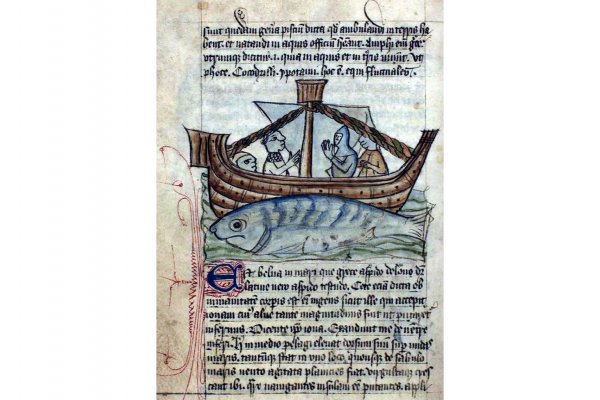 sunt quedam genera piscium dicta qd ambulandi in terris ha
bent. et natandi in aquis officium Amphi eni
dicitur .i. qua in aquis et in tris uiuunt. ut
phoce. Cocodrilli. ypotami. hoc e. equi fluctuales.
Est belua in mari que grece aspido delone dr
latine uero aspido testudo. Cete etiam dicta ob
inmanitatem corpis est eni ingens sicut ille qui accepit
ionam cui' alue tante magnitudinis fuit ut putaret
infernus. Dicente ipo iona. Exaudiuit me de uentre
inferi. in medio pelagi eleuat dorsum suum sup undas
maris. stat in uno loco quousque de sabulo
maris uento agitata planicies fiat.
cant ibi. nauigantes insulam ee putantes. appli